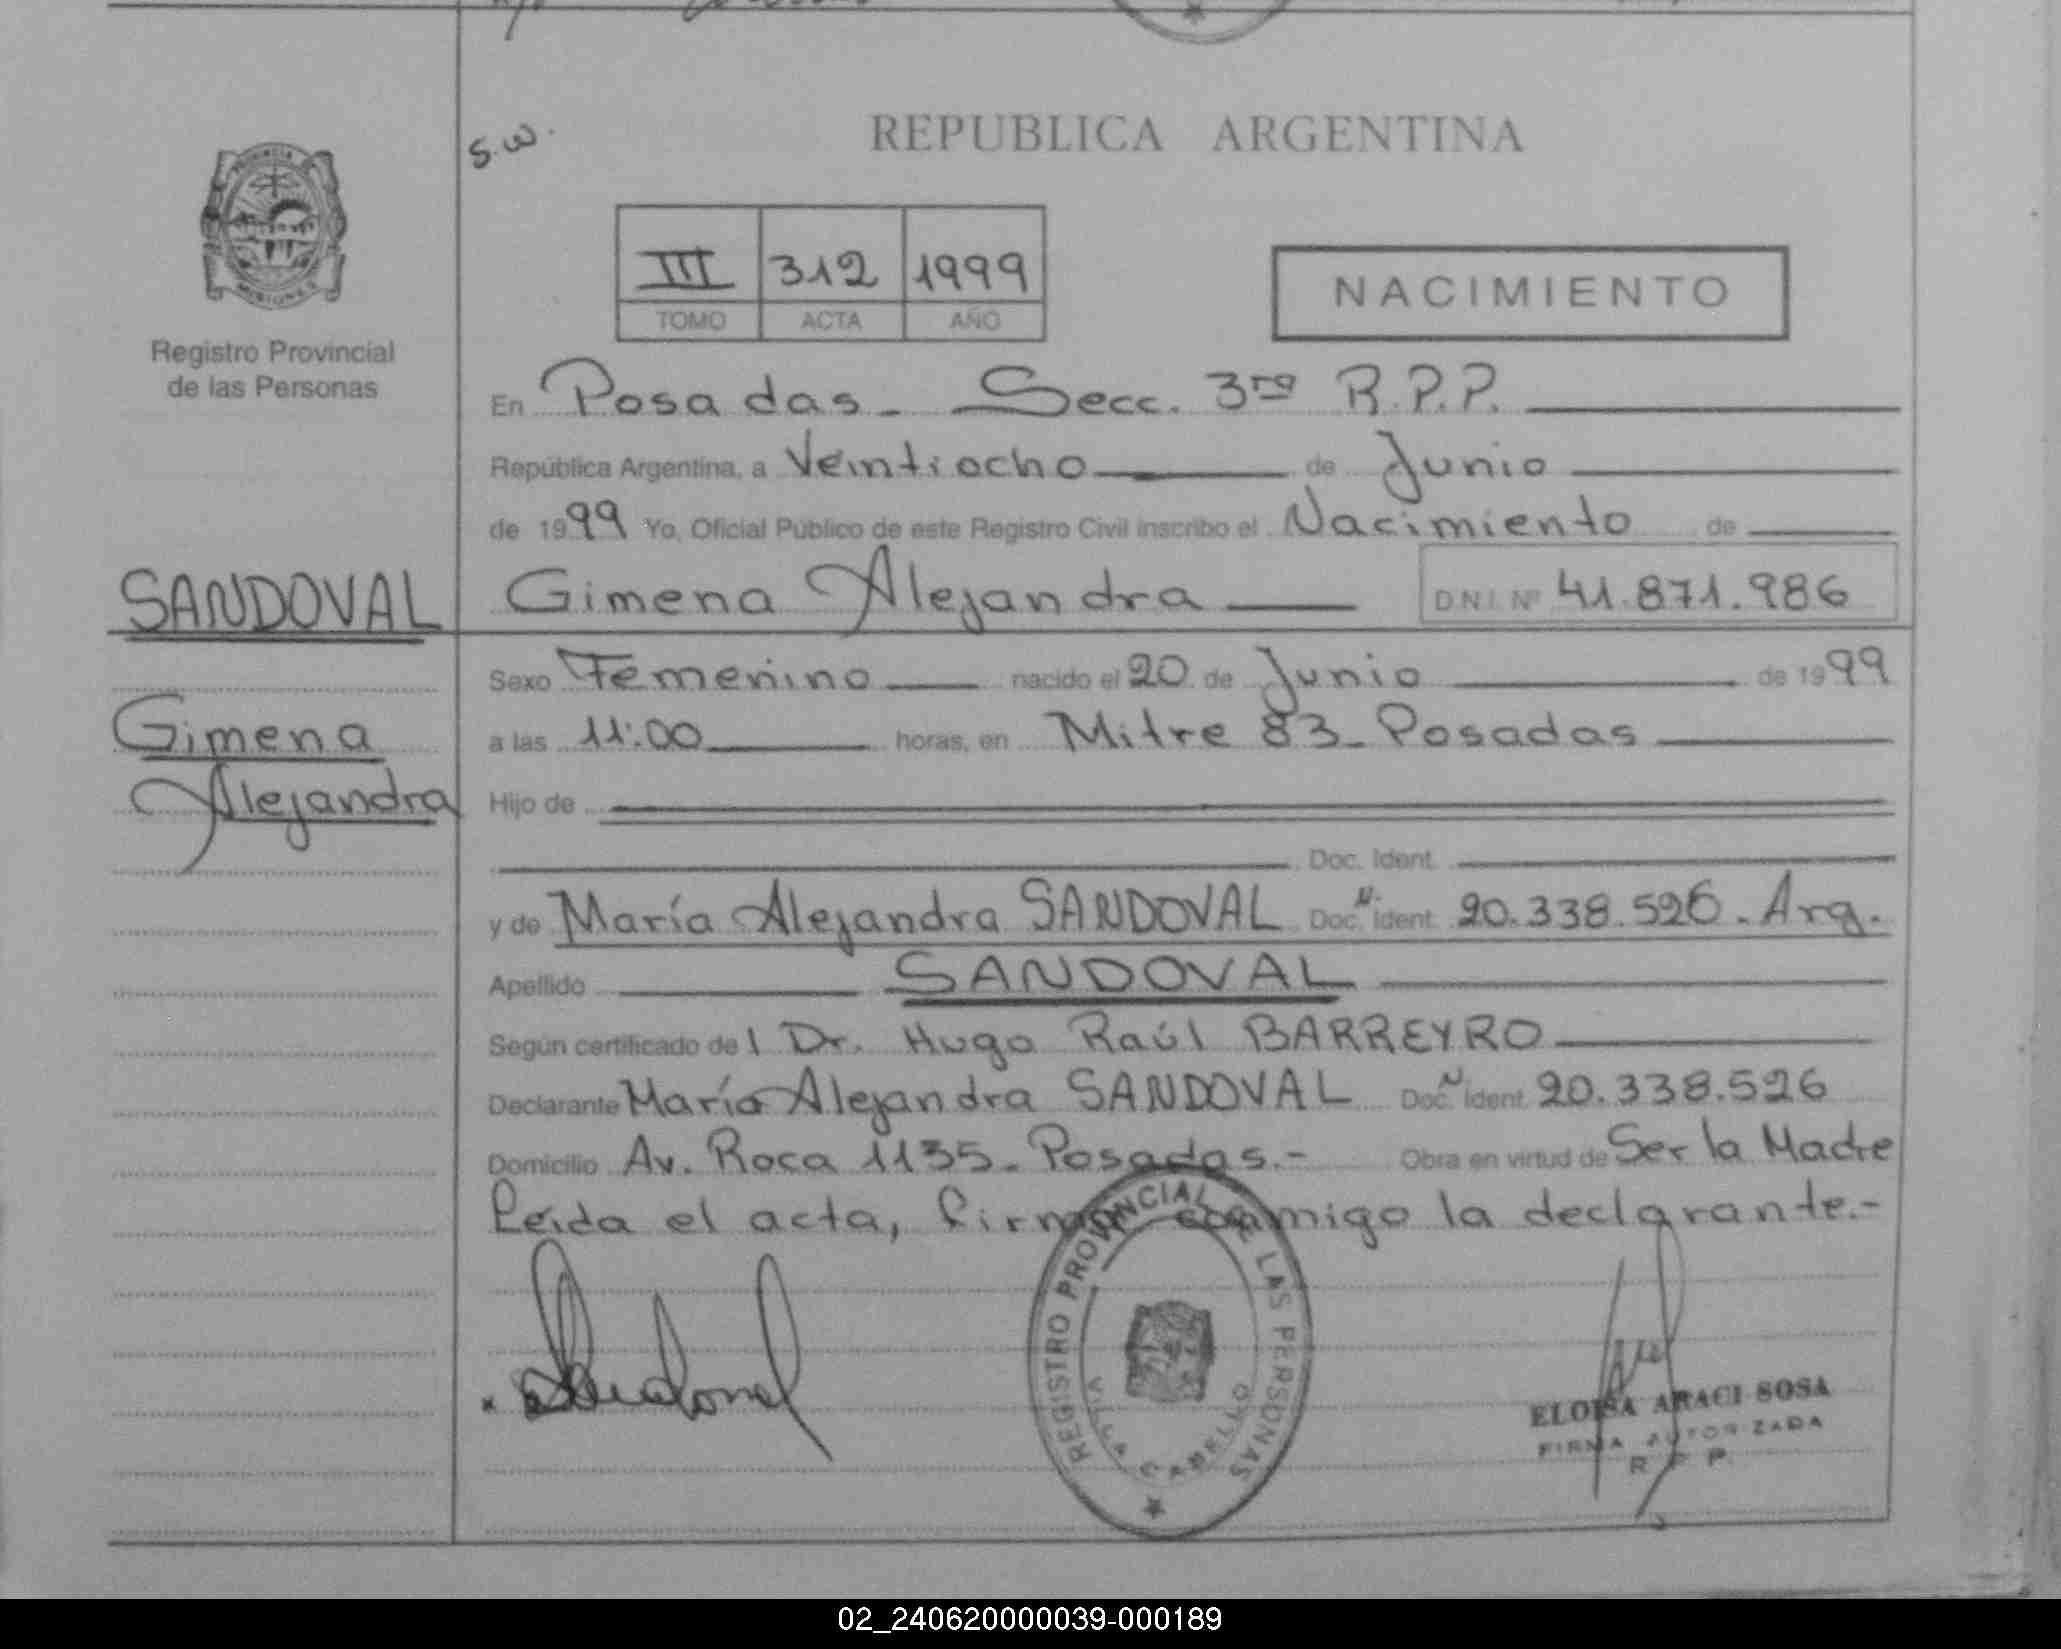 S.W.
REPUBLICA ARGENTINA
PROVINCIA DE
MISIONES
Registro Provincial
de las Personas
III 312 1999
TOMO ACTA AÑO
NACIMIENTO
En Posadas - Secc. 3ra R.P.P.
República Argentina, a Veintiocho de Junio
de 1999 Yo, Oficial Público de este Registro Civil inscribo el Nacimiento de
SANDOVAL
Gimena Alejandra D.N.I. Nº 41.871.986
Gimena
Alejandra
Sexo Femenino nacido el 20 de Junio de 1999
a las 11:00 horas, en Mitre 83 - Posadas
Hijo de
Doc. Ident.
y de María Alejandra SANDOVAL Doc. N. Ident. 20.338.526 - Arg.
Apellido SANDOVAL
Según certificado del Dr. Hugo Raúl BARREYRO
Declarante María Alejandra SANDOVAL Doc. N Ident. 20.338.526
Domicilio Av. Roca 1135 - Posadas.- Obra en virtud de Ser la Madre
Leída el acta, firma conmigo la declarante.-
Sandoval
REGISTRO PROVINCIAL DE LAS PERSONAS
VILLA CABELLO
ELOISA ARACI SOSA
FIRMA AUTORIZADA
R P P
02_240620000039-000189